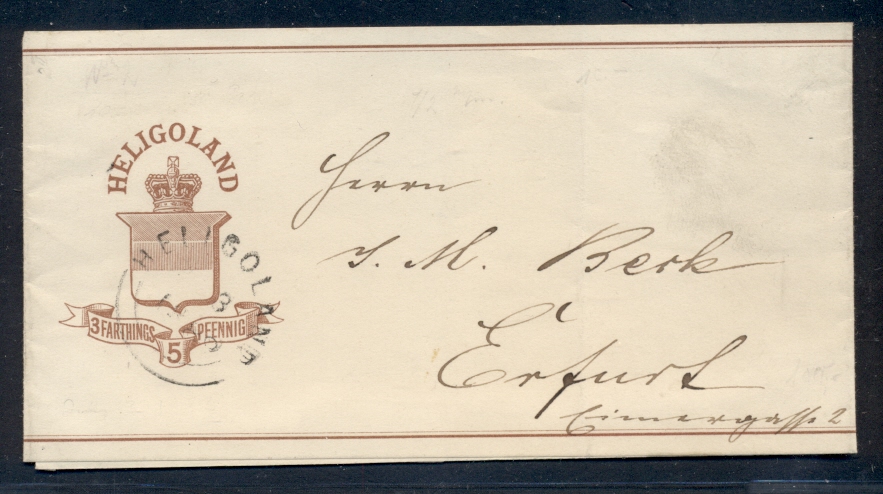 HELIGOLAND
HELIGOLAND
3 FARTHINGS 5 PFENNIG
Herrn
J. M. Berk
Erfurt
Eimergasse 2